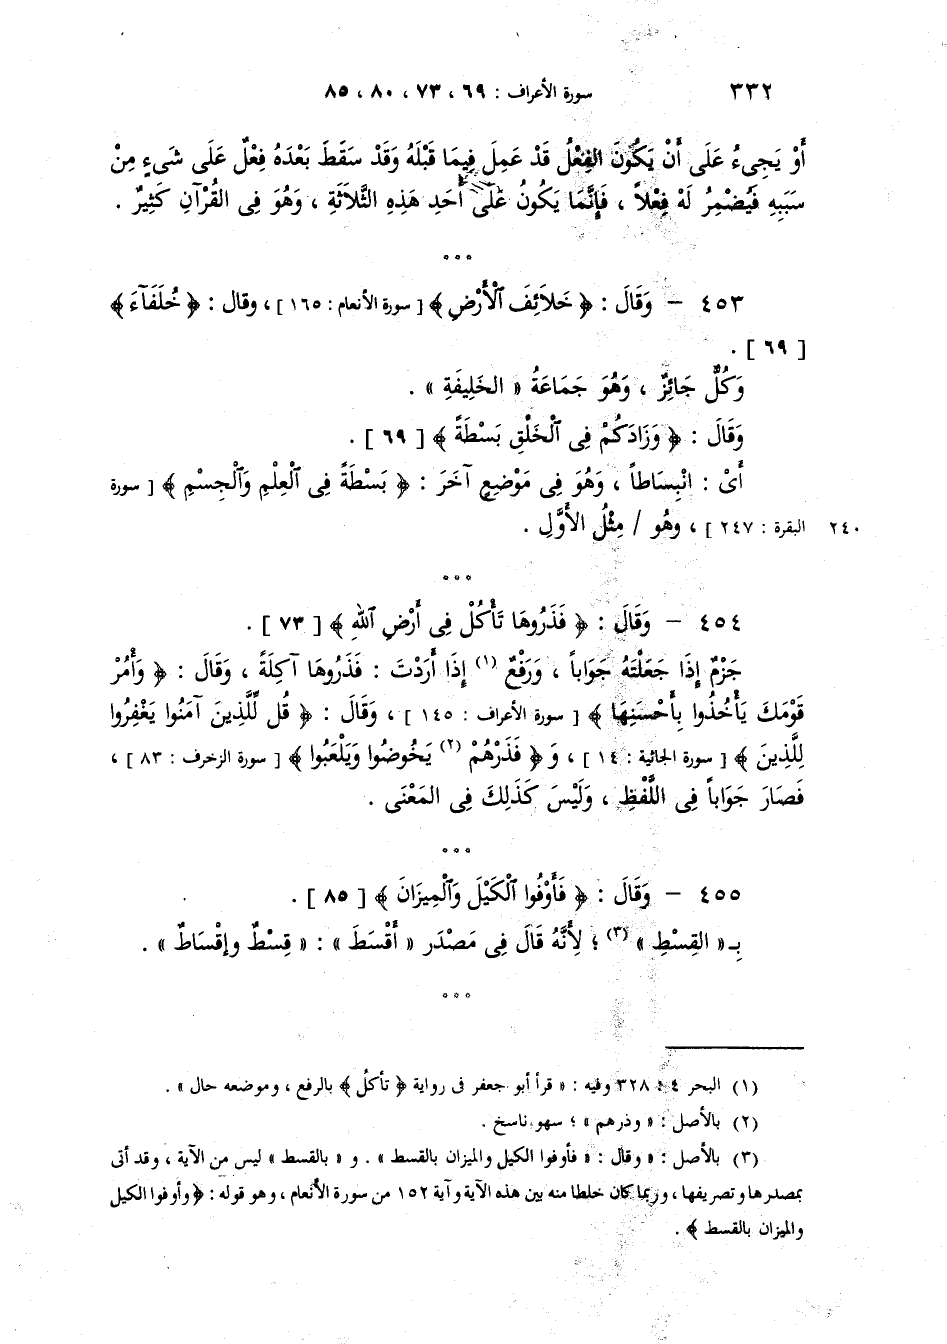 ٣٣٢ سورة الأعراف : ٦٩ ، ٧٣ ، ٨٠ ، ٨٥
أَوْ يَجِىءُ عَلَى أَنْ يَكُونَ الفِعْلُ قَدْ عَمِلَ فِيمَا قَبْلَهُ وَقَدْ سَقَطَ بَعْدَهُ فِعْلٌ عَلَى شَىءٍ مِنْ
سَبَبِهِ فَيُضْمِرُ لَهْ فِعْلاً ، فَإِنَّمَا يَكُونُ عَلَى أَحَدِ هَذِهِ الثَّلاَثَةِ ، وَهُوَ فِى القُرْآنِ كَثِيرٌ .
° ° °
٤٥٣ – وَقَالَ : ﴿ خَلاَئِفَ ٱلْأَرْضِ ﴾ [ سورة الأنعام : ١٦٥ ] ، وقال : ﴿ خُلَفَآءَ ﴾
[ ٦٩ ] .
وَكُلٌّ جَائِزٌ ، وَهُوَ جَمَاعَةُ « الخَلِيفَةِ » .
وَقَالَ : ﴿ وَزَادَكُمْ فِى ٱلْخَلْقِ بَسْطَةً ﴾ [ ٦٩ ] .
أَىْ : انْبِسَاطاً ، وَهُوَ فِى مَوْضِعٍ آخَرَ : ﴿ بَسْطَةً فِى ٱلْعِلْمِ وَٱلْجِسْمِ ﴾ [ سورة
٢٤٠ البقرة : ٢٤٧ ] ، وهُو / مِثْلُ الأَوَّلِ .
° ° °
٤٥٤ – وَقَالَ : ﴿ فَذَرُوهَا تَأْكُلْ فِى أَرْضِ ٱللهِ ﴾ [ ٧٣ ] .
جَزْمٌ إِذَا جَعَلْتَهُ جَوَاباً ، وَرَفْعٌ (١) إِذَا أَرَدْتَ : فَذَرُوهَا آكِلَةً ، وَقَالَ : ﴿ وَأْمُرْ
قَوْمَكَ يَأْخُذُوا بِأَحْسَنِهَا ﴾ [ سورة الأعراف : ١٤٥ ] ، وَقَالَ : ﴿ قُل لِّلَّذِينَ آمَنُوا يَغْفِرُوا
لِلَّذِينَ ﴾ [ سورة الجاثية : ١٤ ] ، وَ ﴿ فَذَرْهُمْ (٢) يَخُوضُوا وَيَلْعَبُوا ﴾ [ سورة الزخرف : ٨٣ ] ،
فَصَارَ جَوَاباً فِى اللَّفْظِ ، وَلَيْسَ كَذَلِكَ فِى المَعْنَى .
° ° °
٤٥٥ – وَقَالَ : ﴿ فَأَوْفُوا ٱلْكَيْلَ وَٱلْمِيزَانَ ﴾ [ ٨٥ ] .
بِـ « القِسْطِ » (٣) ؛ لِأَنَّهُ قَالَ فِى مَصْدَر « أَقْسَطَ » : « قِسْطٌ وإقْسَاطٌ » .
° ° °
(١) البحر ٤ : ٣٢٨ وفيه : « قرأ أبو جعفر فى رواية ﴿ تأكلُ ﴾ بالرفع ، وموضعه حال » .
(٢) بالأصل : « وذرهم » ؛ سهو ناسخ .
(٣) بالأصل : « وقال : « فأوفوا الكيل والميزان بالقسط » . و « بالقسط » ليس من الآية ، وقد أتى
بمصدرها وتصريفها ، وربما كان خلطا منه بين هذه الآية وآية ١٥٢ من سورة الأنعام ، وهو قوله : ﴿ وأوفوا الكيل
والميزان بالقسط ﴾ .